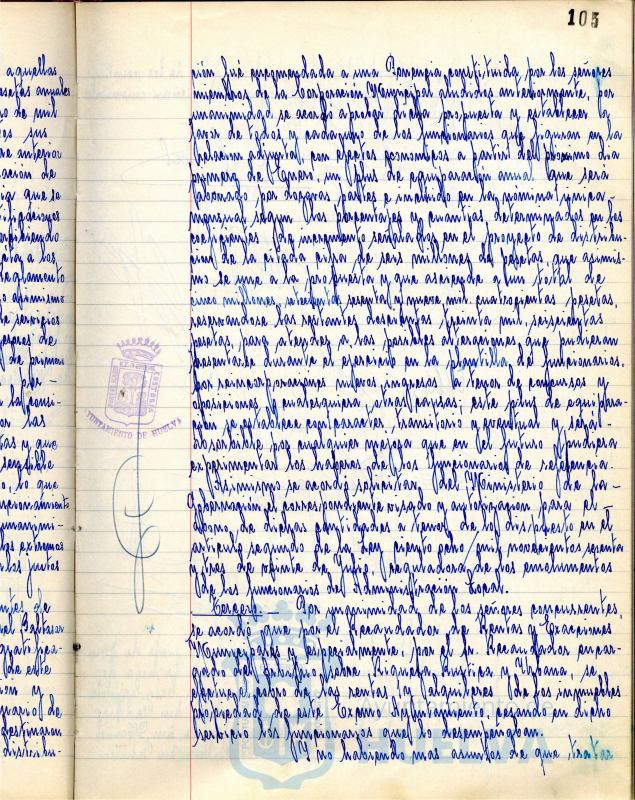 105
ción fué encomendada a una Ponencia constituida por los señores
miembros de la Corporación Municipal aludidos anteriormente, por
unanimidad se acordó aprobar dicha propuesta y establecer la
favor de todos y cada uno de los funcionarios que figuran en la
relación adjunta, con efectos económicos a partir del próximo dia
primero de Enero, un plus de equiparación anual que será
abonado por doceavas partes e incluido en la nómina única
mensual según los porcentajes y cuantias, determinados en los
coeficientes de incremento señalados en el proyecto de distribu-
ción de la citada cifra de seis millones de pesetas que asimis-
mo se une a la propuesta y que asciende a un total de
cinco millones, setecientas sesenta y nueve mil cuatrocientas pesetas,
reservandose las restantes doscientas treinta mil seiscientas
pesetas, para atender a las posibles alteraciones que pudieran
presentarse durante el ejercicio en la plantilla de funcionarios.
por reincorporaciones nuevos ingresos a tenor de concursos y
oposiciones y cualesquiera otras causas; este plus de equipara-
ción se establece con carácter transitorio y eventual y será
absorbible por cualquier mejora que en el futuro pudiera
experimentar los haberes de los funcionarios de referencia.
Asimismo se acordó solicitar del Ministerio de la
Gobernación el correspondiente visado y autorización para el
abono de dichas cantidades a tenor de lo dispuesto en el
articulo segundo de la Ley ciento ocho/mil novecientos sesenta
y tres de veinte de Julio, reguladora de los emolumentos
de los funcionarios de Administración Local.
Tercero.- Por unanimidad de los señores concurrentes,
se acordó que por el Recaudador de Rentas y Exacciones
Municipales y especialmente, por el Sr. Recaudador encar-
gado del arbitrio sobre Riqueza Rustica y Urbana, se
efectue el cobro de las rentas y alquileres de los inmuebles
propiedad de este Excmo Ayuntamiento, cesando en dicho
servicio los funcionarios que lo desempeñan.
Y no habiendo mas asuntos de que tratar
AYUNTAMIENTO DE HUELVA
Ayuntamiento de
HUELVA